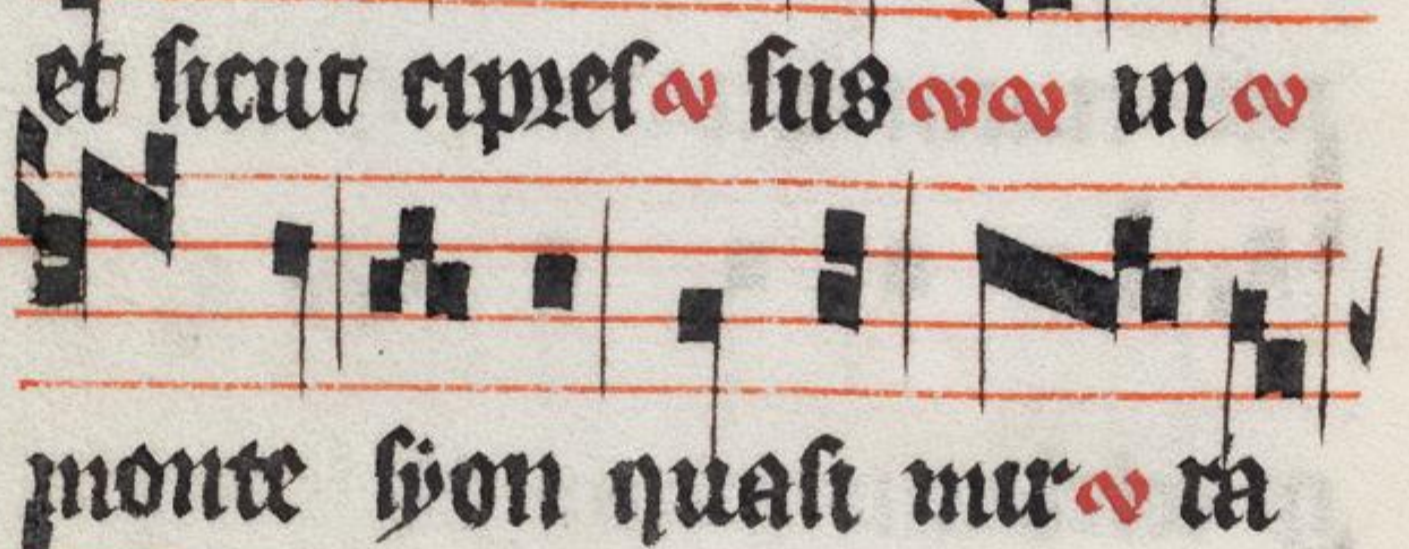 et sicut cipres sus in
monte syon quasi mir ra